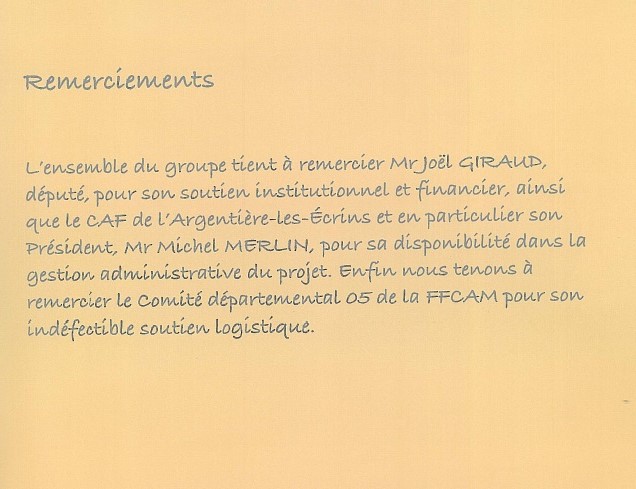 Remerciements
L'ensemble du groupe tient à remercier Mr Joël GIRAUD,
député, pour son soutien institutionnel et financier, ainsi
que le CAF de l'Argentière-les-Écrins et en particulier son
Président, Mr Michel MERLIN, pour sa disponibilité dans la
gestion administrative du projet. Enfin nous tenons à
remercier le Comité départemental 05 de la FFCAM pour son
indéfectible soutien logistique.